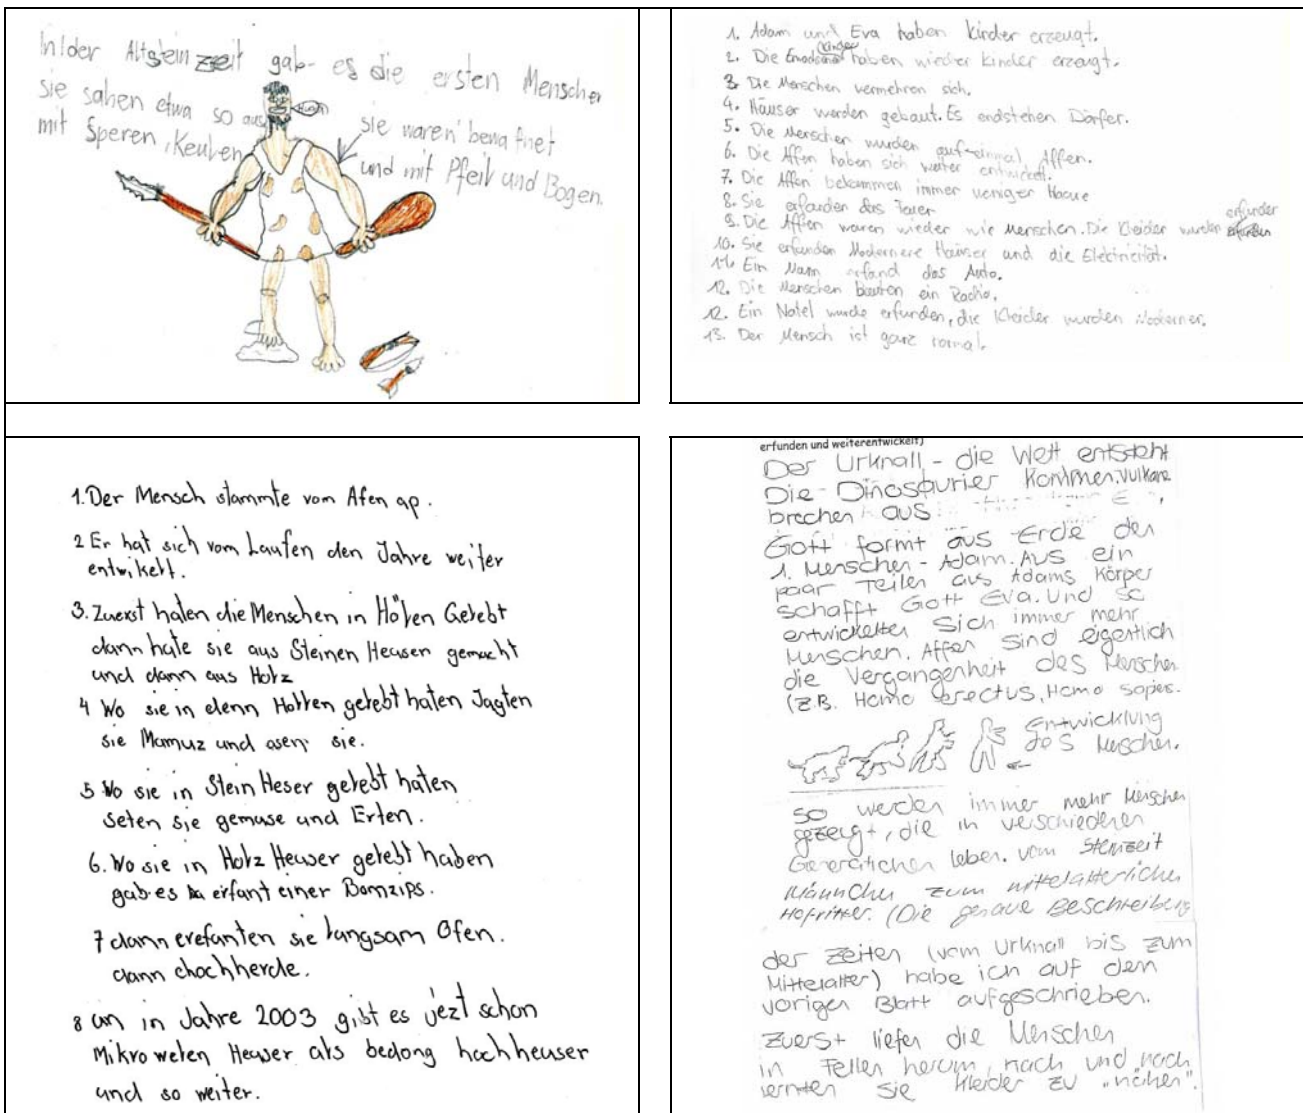 In der Altsteinzeit gab es die ersten Menschen
sie sahen etwa so aus
sie waren bewafnet
mit Speren, Keulen
und mit Pfeil und Bogen.
1. Adam und Eva haben kinder erzeugt.
2. Die haben wieder kinder erzeugt.
3. Die Menschen vermehren sich.
4. Häuser werden gebaut. Es endstehen Dörfer.
5. Die Menschen wurden auf-einmal Affen.
6. Die Affen haben sich weiter entwickelt.
7. Die Affen bekammen immer weniger Haare
8. Sie erfanden das Feuer
9. Die Affen waren wieder wie Menschen. Die Kleider wurden erfunden
10. Sie erfanden Modernere Häuser und die Elektricität.
11. Ein Mann erfand das Auto.
12. Die Menschen bauten ein Radio.
12. Ein Natel wurde erfunden, die Kleider wurden Moderner.
13. Der Mensch ist ganz normal.
1. Der Mensch stammte vom Afen ap.
2 Er hat sich vom Laufen den Jahre weiter
entwikelt.
3. Zuerst haten die Menschen in Hölen Gelebt
dann hate sie aus Steinen Heusen gemacht
und dann aus Holz
4 Wo sie in denn Hollen gelebt haten Jagten
sie Mamuz und asen sie.
5 Wo sie in Stein Heser gelebt haten
seten sie gemuse und Erten.
6. Wo sie in Holz Heuser gelebt haben
gab es erfant einer Bomzips.
7 dann erefanten sie langsam Ofen.
dann chochherde.
8 un in Jahre 2003 gibt es jezt schon
Mikro welen Heuser als bedong hochheuser
und so weiter.
erfunden und weiterentwickelt)
Der Urknall - die Welt entsteht
Die Dinosaurier kommen. Vulkane
brechen aus
Gott formt aus Erde den
1. Menschen - Adam. Aus ein
paar Teilen aus Adams Körper
schafft Gott Eva. Und so
entwickelten sich immer mehr
Menschen. Affen sind eigentlich
die Vergangenheit des Menschen
(z.B. Homo erectus, Homo sapies.
Entwicklung
des Menschen.
so werden immer mehr Menschen
gezeugt, die in verschiedenen
Generationen leben. vom Steinzeit
Männchen zum mittelalterlichen
Hofritter. (Die genaue Beschreibung
der Zeiten (vom Urknall bis zum
Mittelalter) habe ich auf den
vorigen Blatt aufgeschrieben.
Zuerst liefen die Menschen
in Fellen herum, nach und nach
lernten sie Kleider zu "nähen".